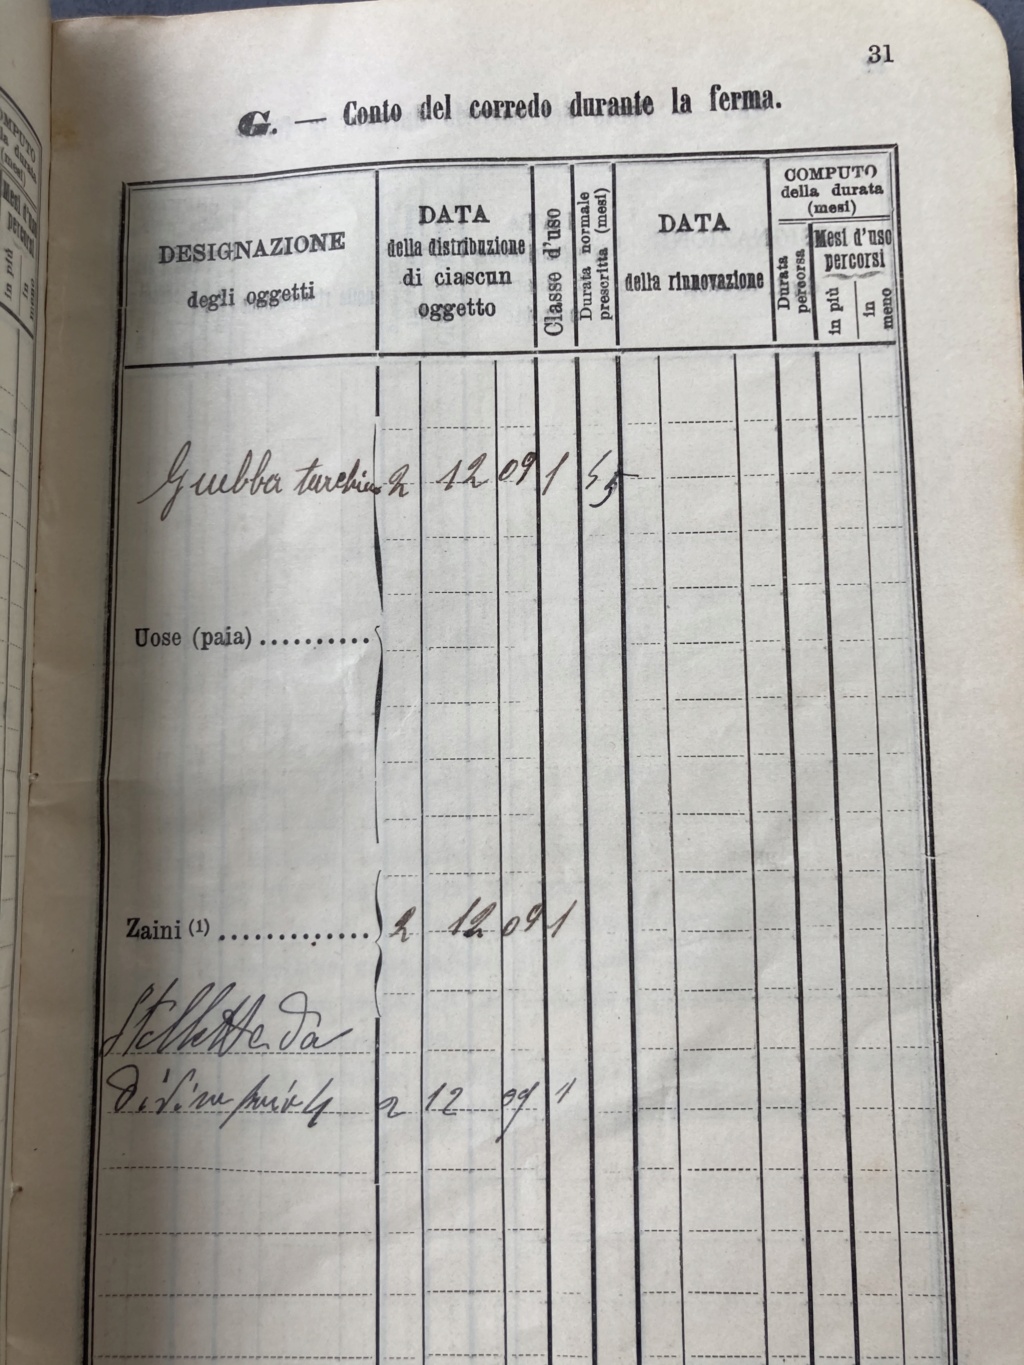 31
G. — Conto del corredo durante la ferma.
DESIGNAZIONE
degli oggetti
DATA
della distribuzione
di ciascun
oggetto
Classe d'uso
Durata normale
prescritta (mesi)
DATA
della rinnovazione
COMPUTO
della durata
(mesi)
Durata
percorsa
Mesi d'uso
percorsi
in più
in
meno
2 12 09 1
Uose (paia)..........
Zaini (1)............. 2 12 09 1
Stellette da
2 12 09 1
COMPUTO
(mesi)
Mesi d'uso
percorsi
in più
in
meno